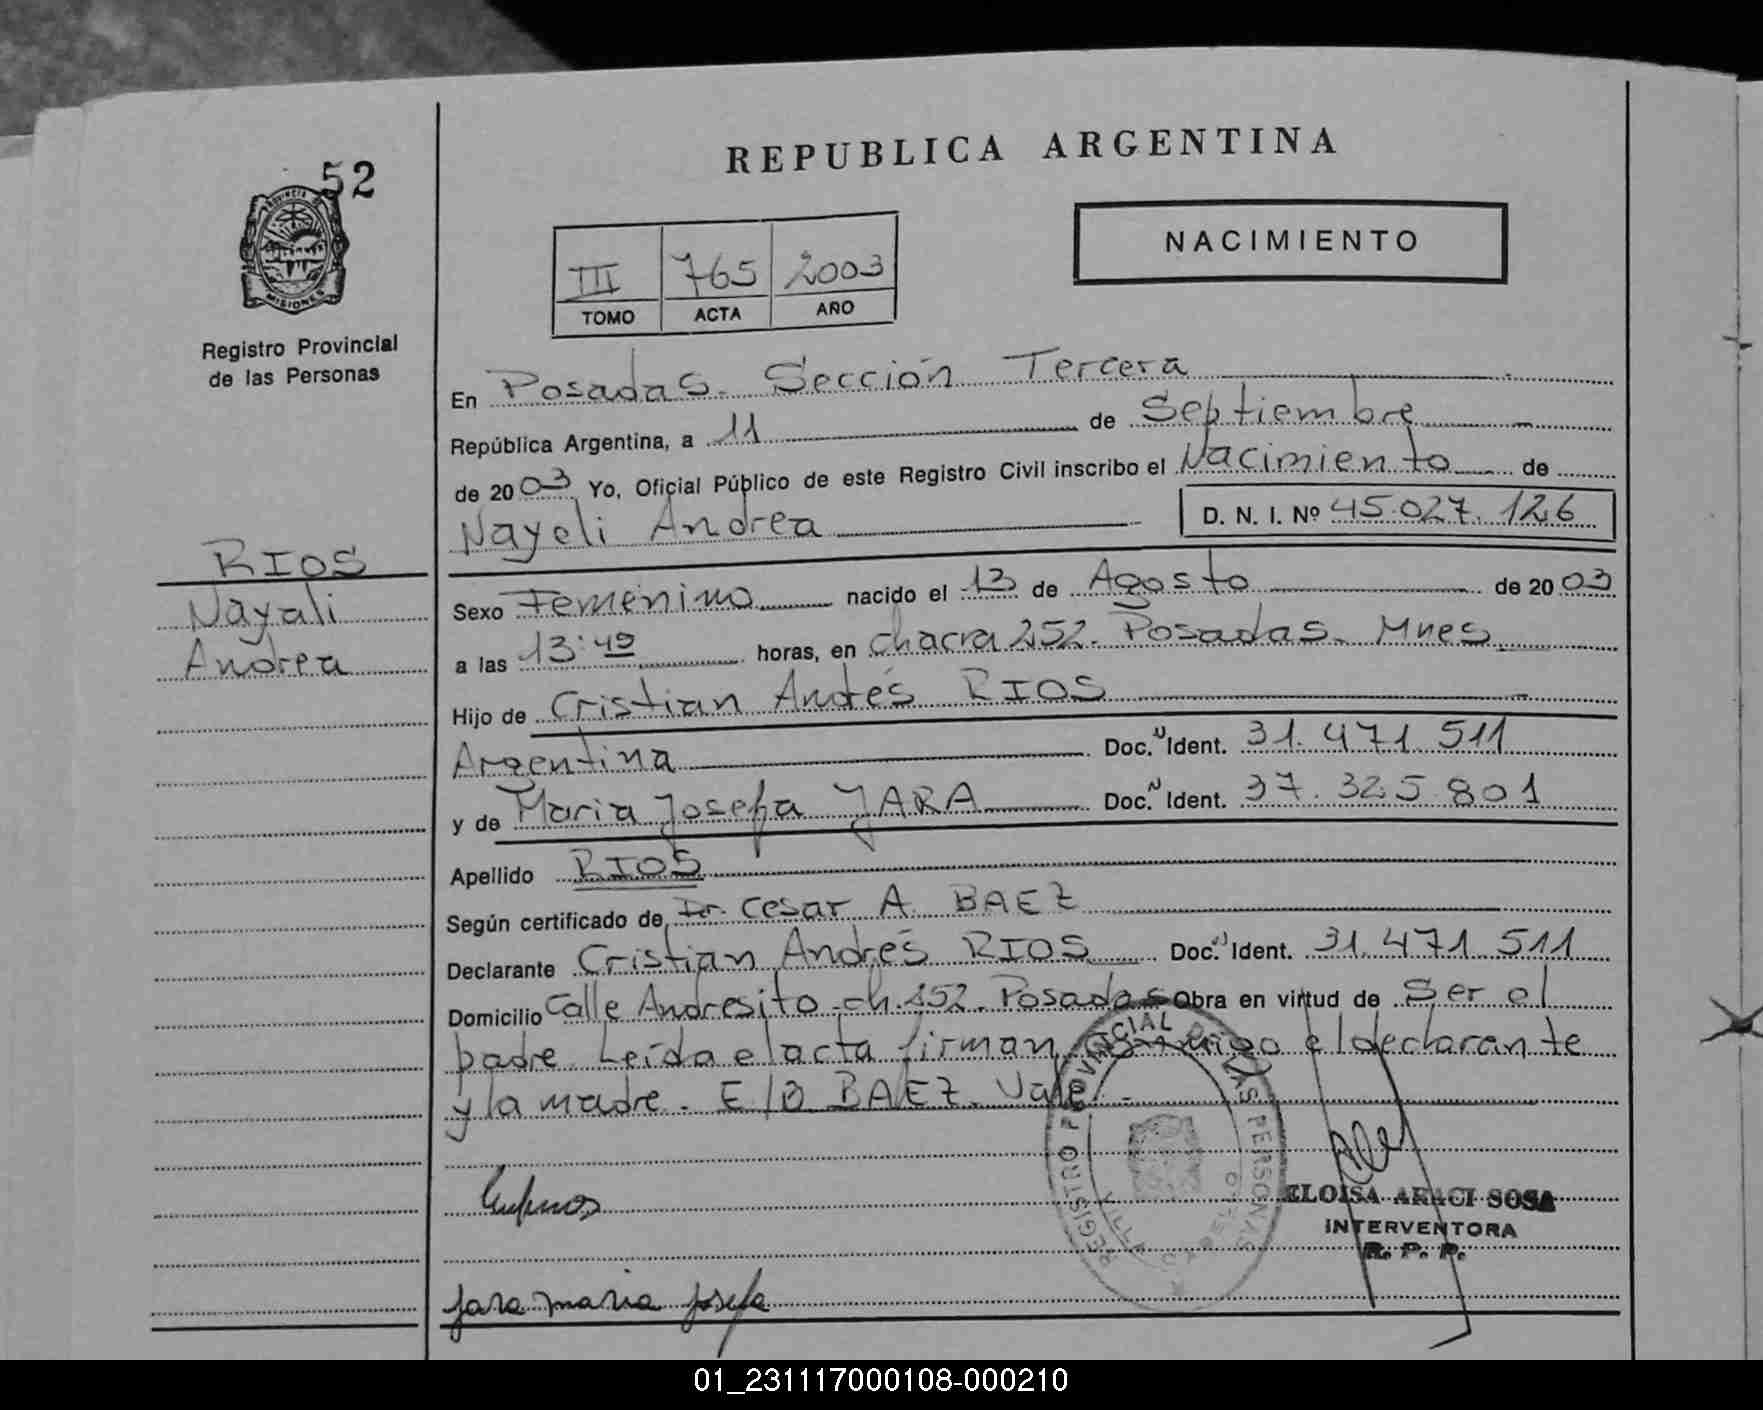 52
PROVINCIA DE
MISIONES
Registro Provincial
de las Personas
REPUBLICA ARGENTINA
NACIMIENTO
III 765 2003
TOMO ACTA AÑO
En Posadas. Sección Tercera
República Argentina, a 11 de Septiembre
de 2003 Yo, Oficial Público de este Registro Civil inscribo el Nacimiento de
Nayeli Andrea D. N. I. Nº 45.027.126
RIOS
Nayali
Andrea
Sexo Femenino nacido el 13 de Agosto de 2003
a las 13:49 horas, en chacra 252. Posadas. Mnes
Hijo de Cristian Andrés RIOS
Argentina Doc. N Ident. 31.471.511
y de Maria Josefa JARA Doc. N Ident. 37.325.801
Apellido RIOS
Según certificado de Dr. Cesar A. BAEZ
Declarante Cristian Andrés RIOS Doc. N Ident. 31.471.511
Domicilio Calle Andresito ch. 252. Posadas Obra en virtud de Ser el
padre. Leída el acta firman conmigo el declarante
y la madre. E/D BAEZ. Vale.
REGISTRO PROVINCIAL DE LAS PERSONAS
ELOISA ARACI SOSA
INTERVENTORA
R. P. P.
Jara maria josefa
01_231117000108-000210